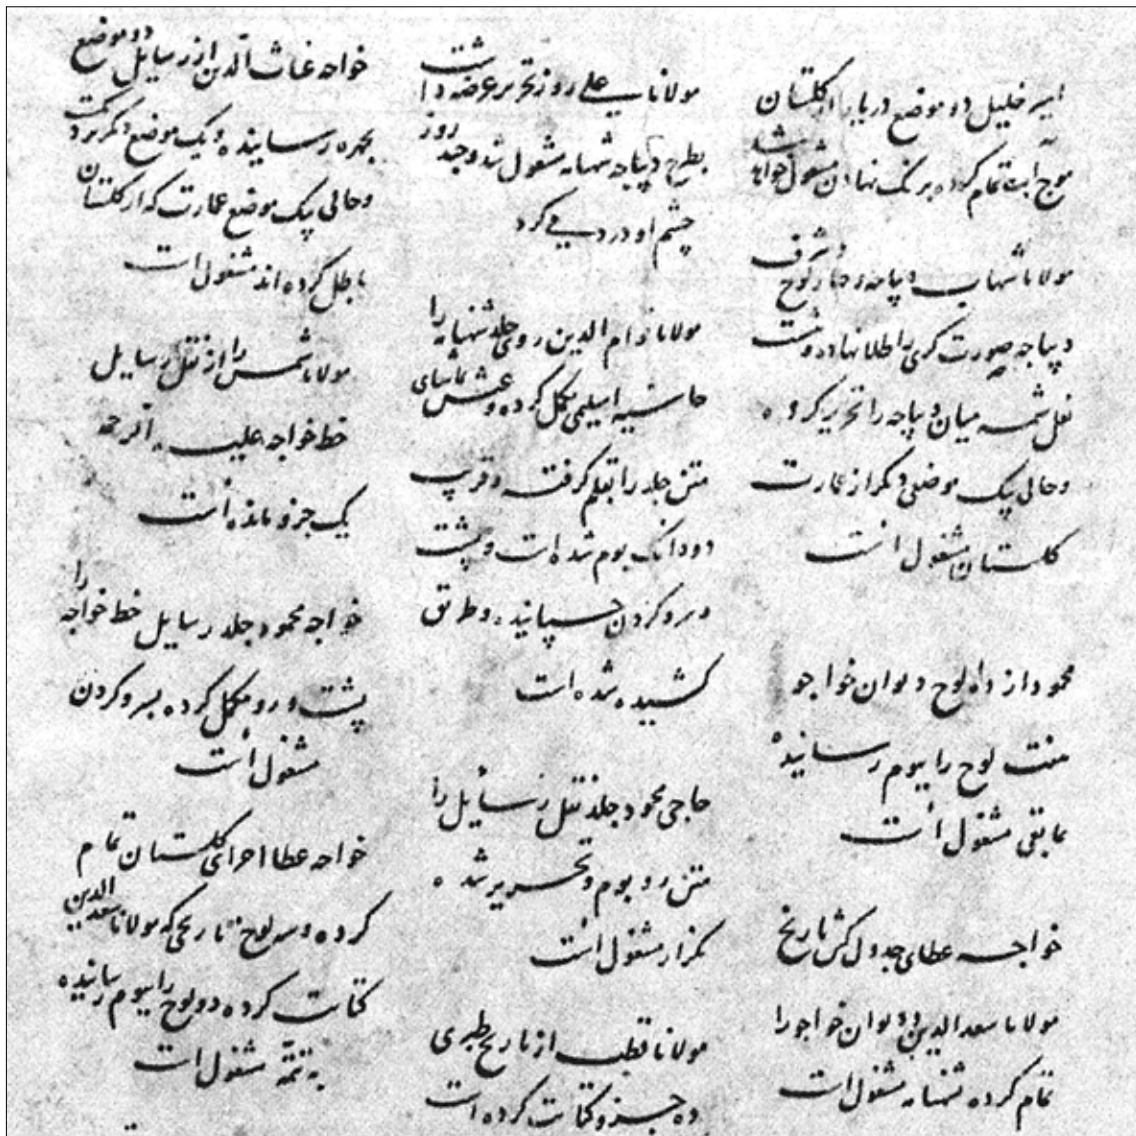 امیر خلیل دو موضع دریا را از گلستان
موج آب تمام کرده برنگ نهادن مشغول خواهد شد
مولانا شهاب دیباچه و چهار لوح و شرف
دیباجه صورت کری را طلا نهاده و هشت
نعل شمسه میان دیباجه را تحریر کرده
و حالی بیک موضعی دیگر از عمارت
گلستان مشغول است
محمود از ده لوح دیوان خواجو
هفت لوح را ببوم رسانیده
بمابقی مشغول است
خواجه عطای جدول کش تاریخ
مولانا سعدالدین و دیوان خواجو را
تمام کرده بشهنامه مشغول است
مولانا علی روز تحریر عرضه داشت
بطرح دیباجه شهنامه مشغول شد و چند روز
چشم او درد می کرد
مولانا قوام الدین روی جلد شهنامه را
حاشیه اسلیمی مکمل کرده و
متن جلد را بقلم گرفته و قریب
دودانک بوم شده است و پشت
و سر و گردن چسپانیده و طریق
کشیده شده است
حاجی محمود جلد نقل رسایل را
متن رو بوم و تحریر شده
بکنار مشغول است
مولانا قطب از تاریخ طبری
ده جزو کتابت کرده است
خواجه غیاث الدین از رسایل دو موضع
بچهره رسانیده و یک موضع دیگر نزدیکست
و حالی بیک موضع عمارت که از گلستان
باطل کرده اند مشغول است
مولانا شمس را از نقل رسایل
خط خواجه علیه الرحمه
یک جزو مانده است
خواجه محمود جلد رسایل خط خواجه را
پشت و رو مکمل کرده بسر و گردن
مشغول است
خواجه عطا اجزای گلستان تمام
کرده و سه لوح تاریخی که مولانا سعد الدین
کتابت کرده دو لوح را ببوم رسانیده
به تتمه مشغول است